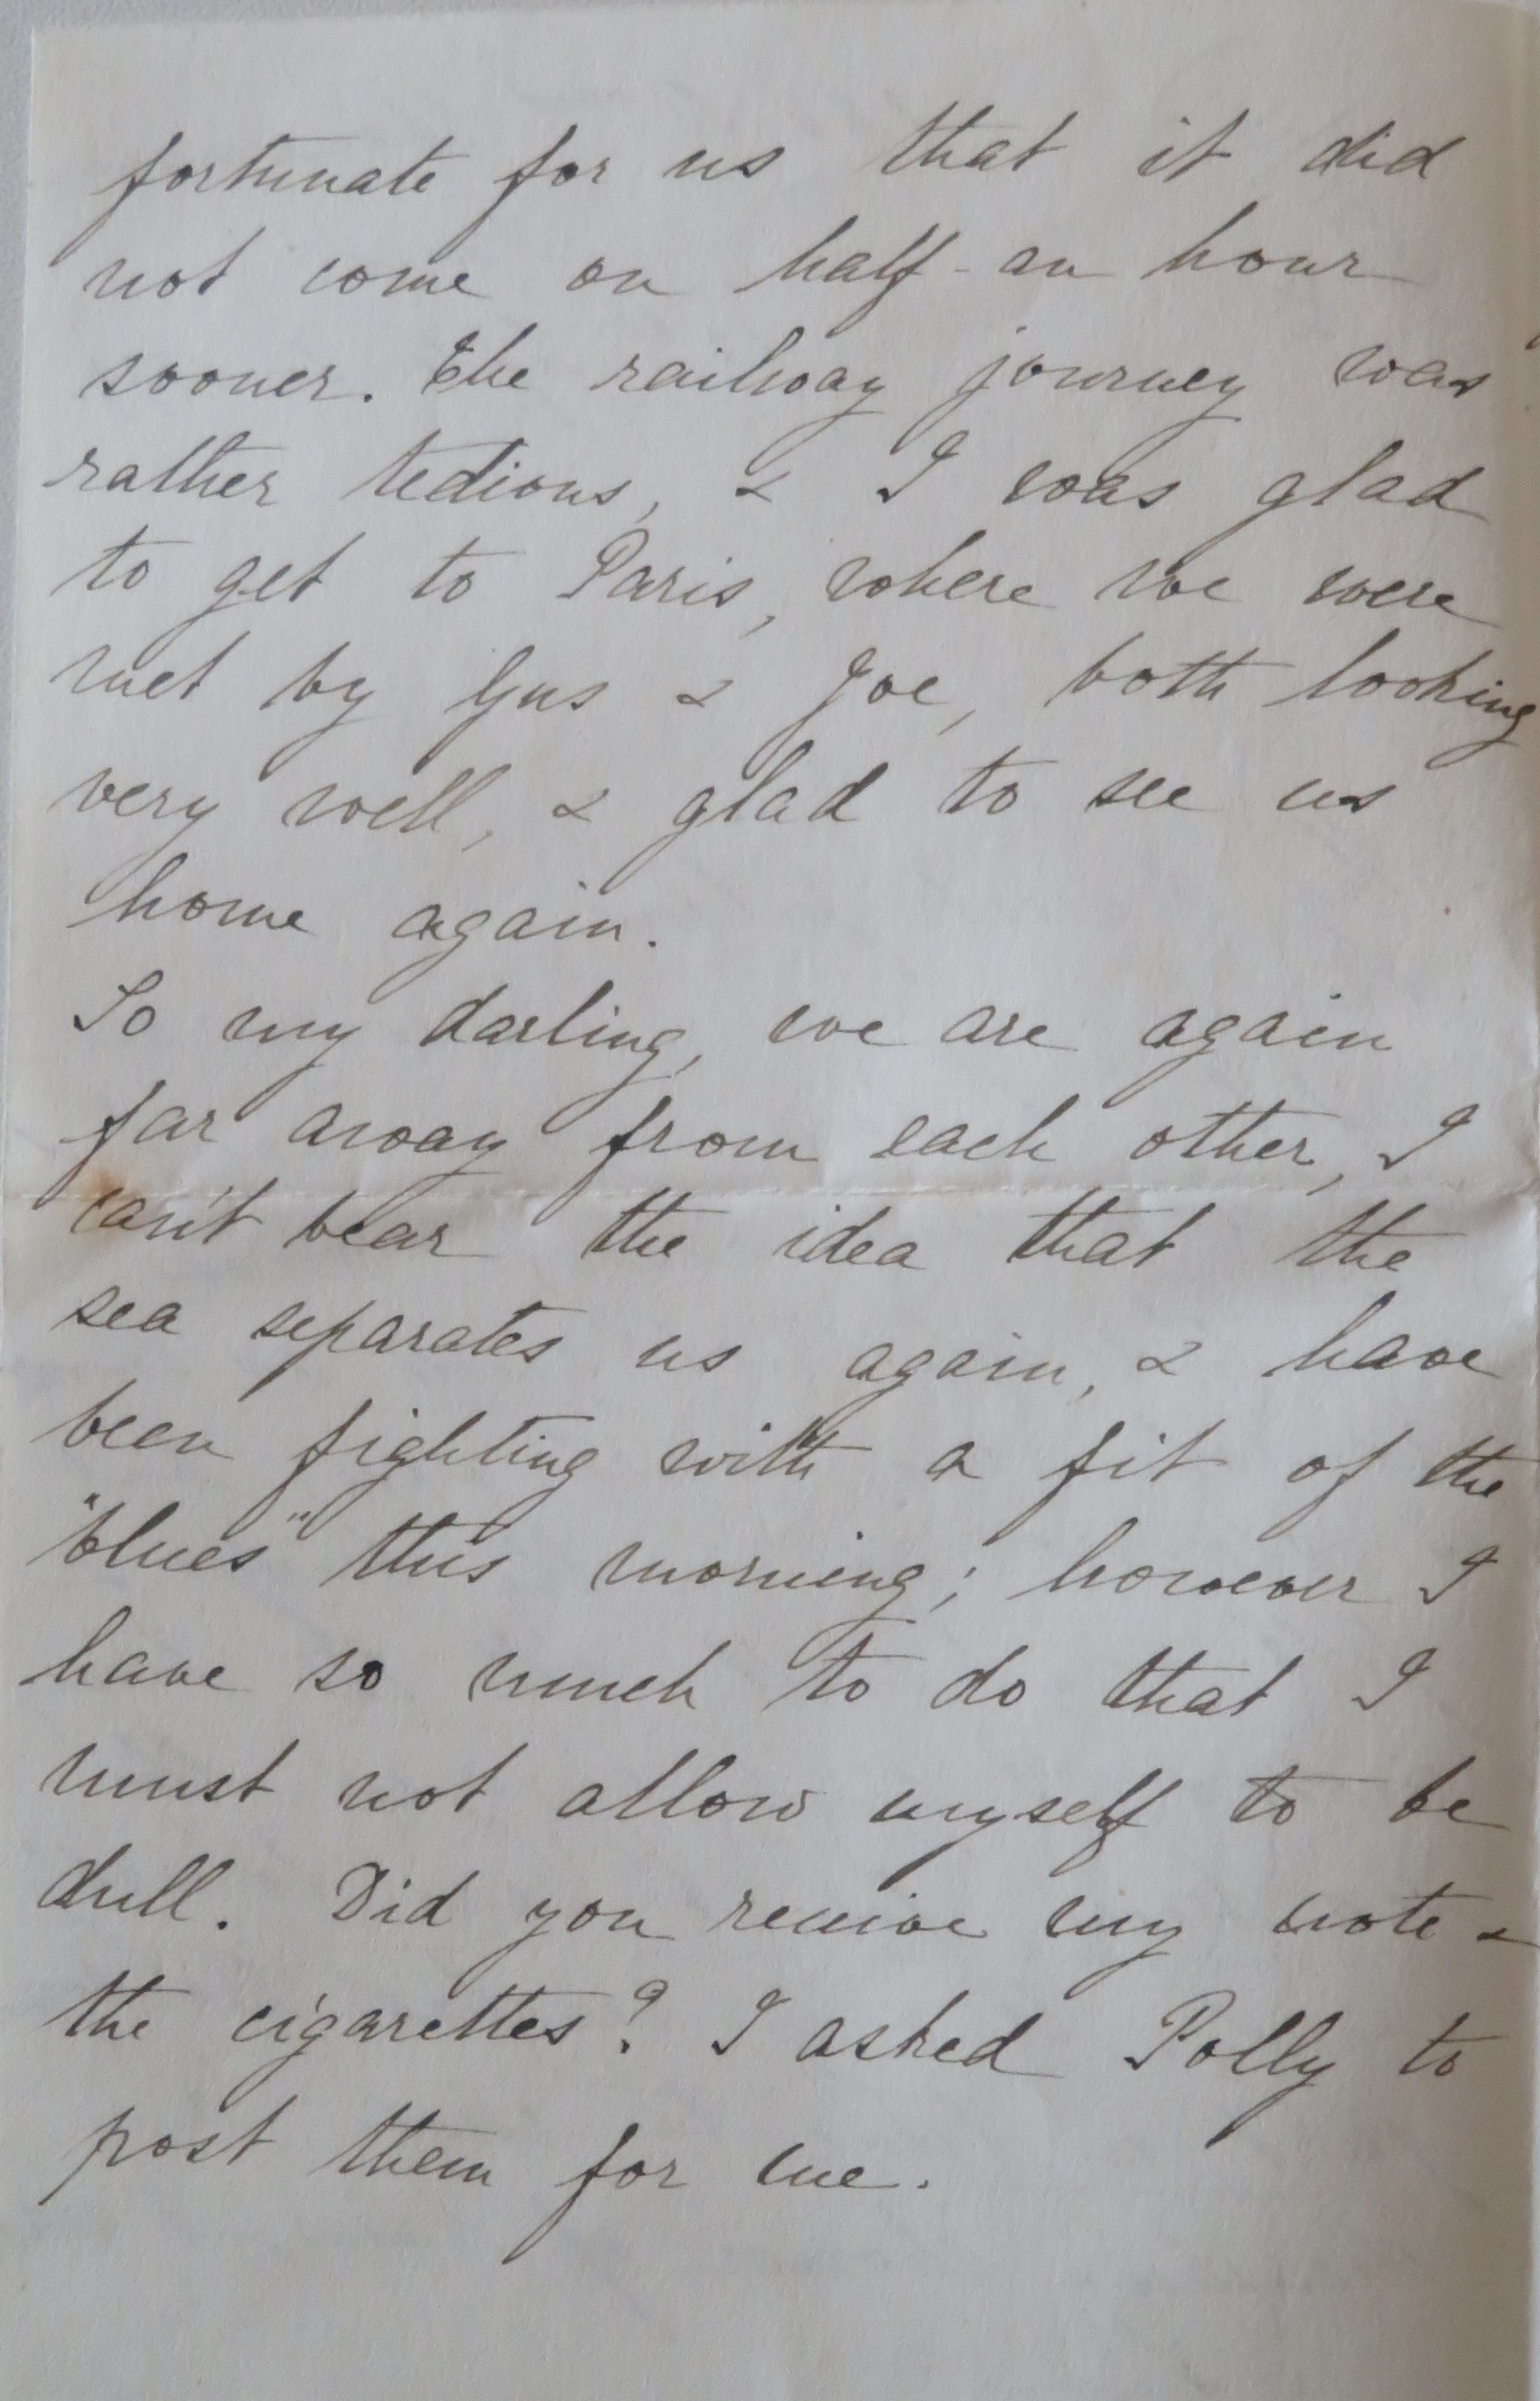 fortunate for us that it did
not come on half-an hour
sooner. The railway journey was
rather tedious, & I was glad
to get to Paris, where we were
met by Gus & Joe, both looking
very well, & glad to see us
home again.
So my darling, we are again
far away from each other, I
can't bear the idea that the
sea separates us again, & have
been fighting with a fit of the
"blues" this morning; however I
have so much to do that I
must not allow myself to be
dull. Did you receive my note &
the cigarettes? I asked Polly to
post them for me.